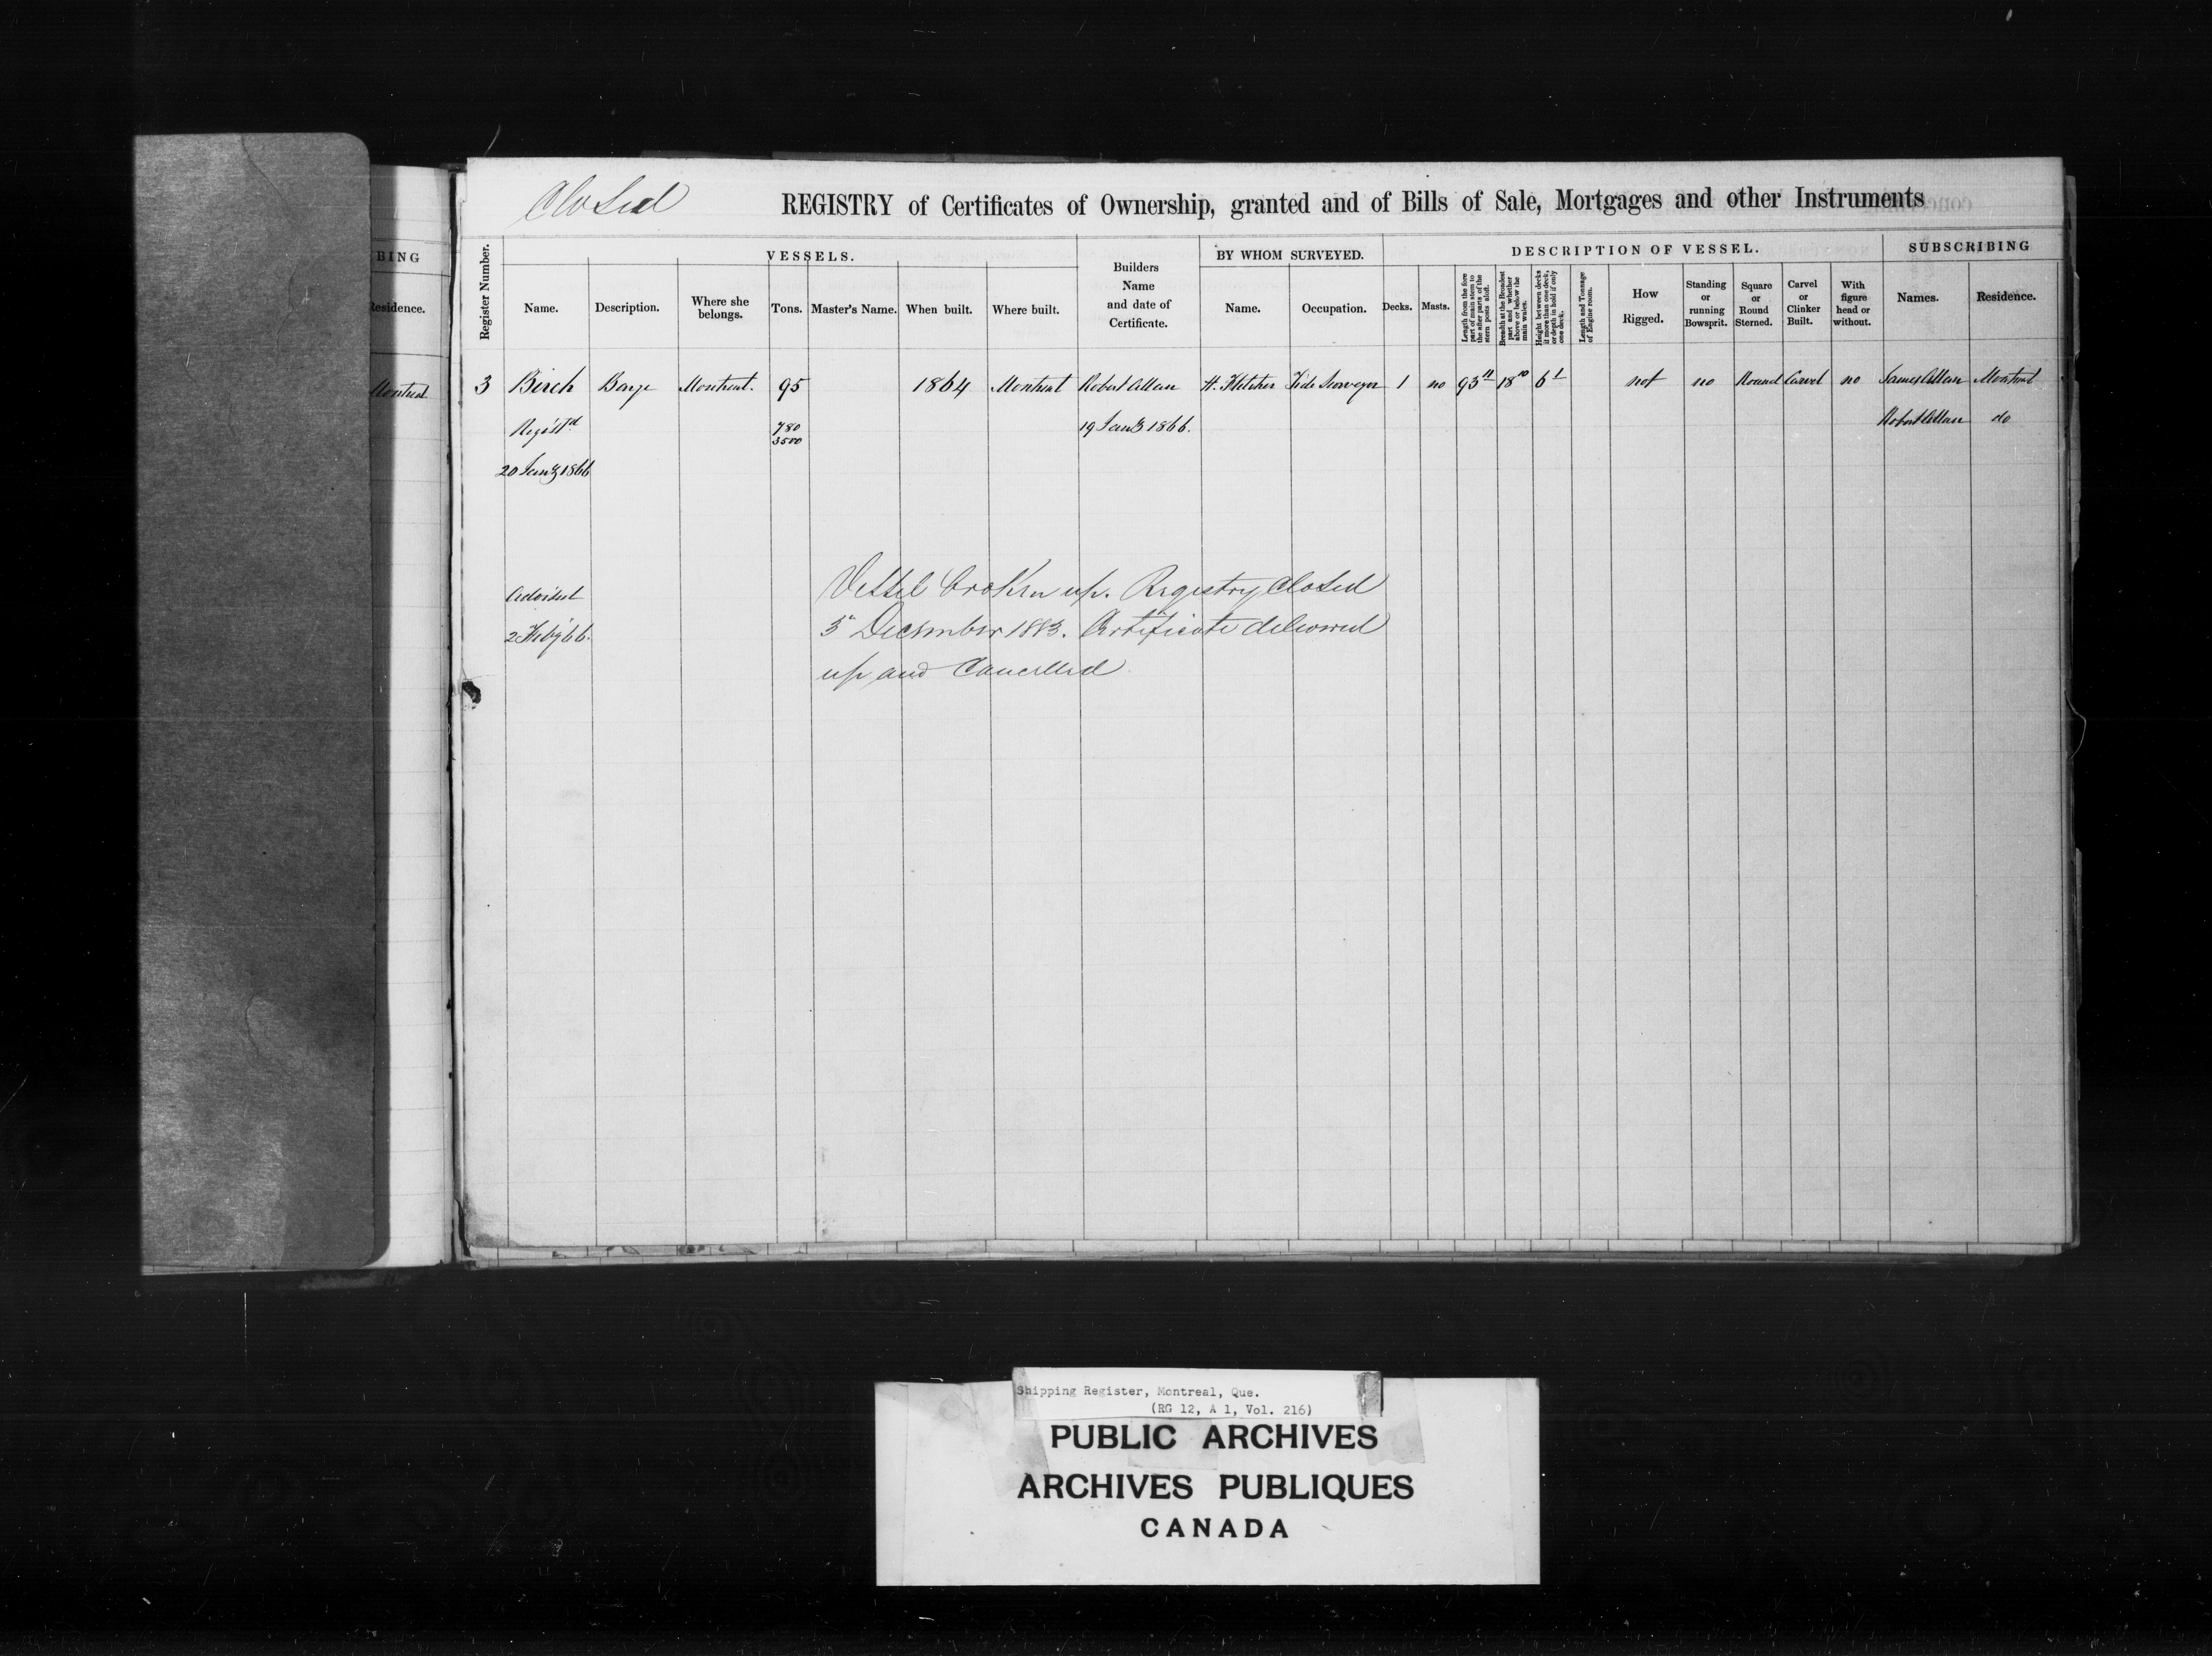 Closed
REGISTRY of Certificates of Ownership, granted and of Bills of Sale, Mortgages and other Instruments
BING
Residence.
Montreal
Register Number.
VESSELS.
Name.
Description.
Where she belongs.
Tons.
Master's Name.
When built.
Where built.
Builders Name and date of Certificate.
BY WHOM SURVEYED.
Name.
Occupation.
DESCRIPTION OF VESSEL.
Decks.
Masts.
Length from the fore part of main stem to the after parts of the stern posts aloft.
Breadth at the Broadest part and whether above or below the main wales.
Height between decks if more than one deck, or depth in hold if only one deck.
Length and Tonnage of Engine room.
How Rigged.
Standing or running Bowsprit.
Square or Round Sterned.
Carvel or Clinker Built.
With figure head or without.
SUBSCRIBING
Names.
Residence.
3 Birch Barge Montreal. 95 1864 Montreal Robert Allan H. Fletcher Tide Surveyor 1 no 93 11 18 10 6 1 not no Round Carvel no James Allan Montreal
Regist'd 780 19 Jany 1866. Robert Allan do
3500
20 Jany 1866
Advised
2 Feby 66.
Vessel broken up. Registry Closed
3d December 1883. Certificate delivered
up and Cancelled
Shipping Register, Montreal, Que.
(RG 12, A 1, Vol. 216)
PUBLIC ARCHIVES
ARCHIVES PUBLIQUES
CANADA